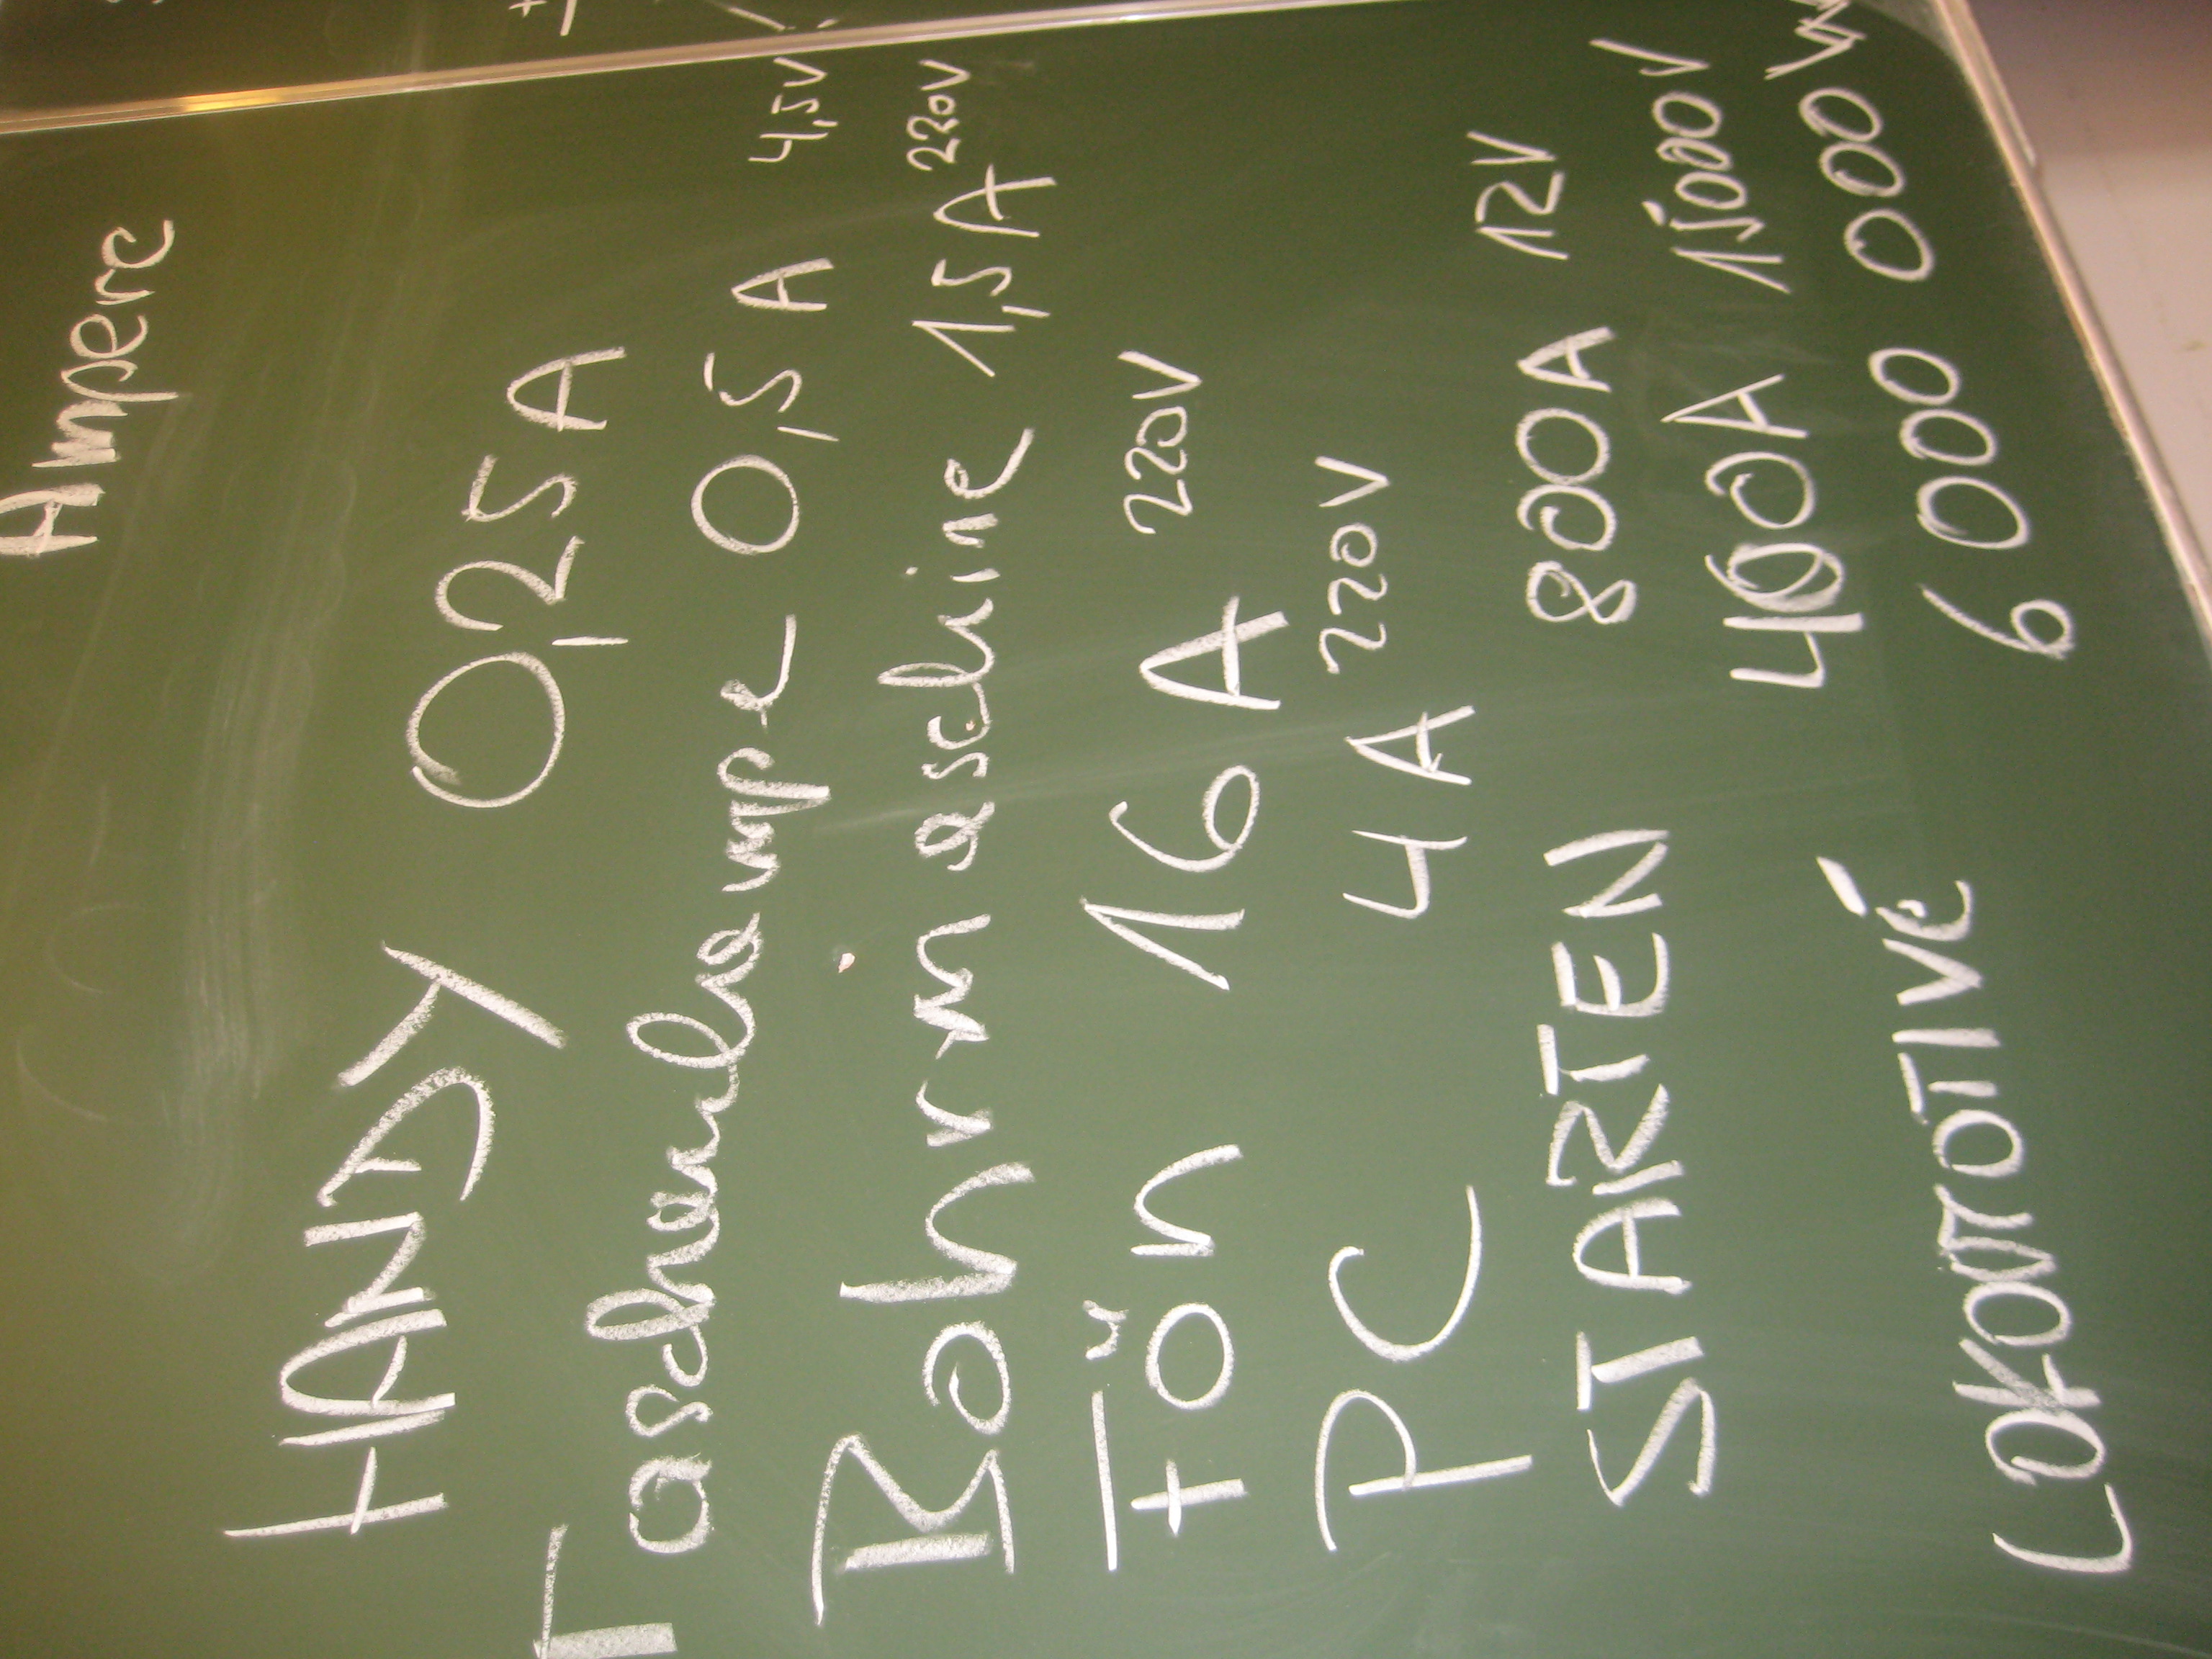 Ampere
HANDY 0,25 A
Taschenlampe 0,5 A 4,5V
Bohrmaschine 1,5 A 220V
Fön 16 A 220V
PC 4 A 220V
STARTEN 800A 12V
400A 15000 V
LOKOMOTIVE 6 000 000 W